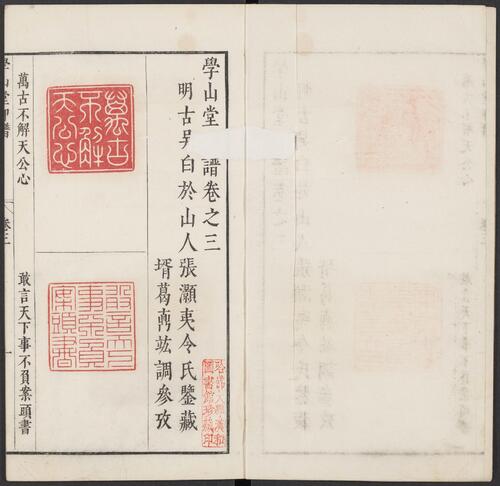 學山堂譜卷之三
明古吳白於山人張灝夷令氏鑒藏
壻葛鼒竑調參攷
萬古不解天公心
萬古不解天公心
敢言天下事不負案頭書
敢言天下事不負案頭書
學山堂印譜
卷三
一